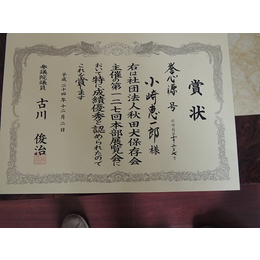 賞状
誉心源 号
小崎惠一郎 様
右は社団法人秋田犬保存会
主催の第一二七回本部展覧会に
おいて特に成績優秀と認められたので
これを賞します
平成二十四年十二月二日
参議院議員
古川俊治